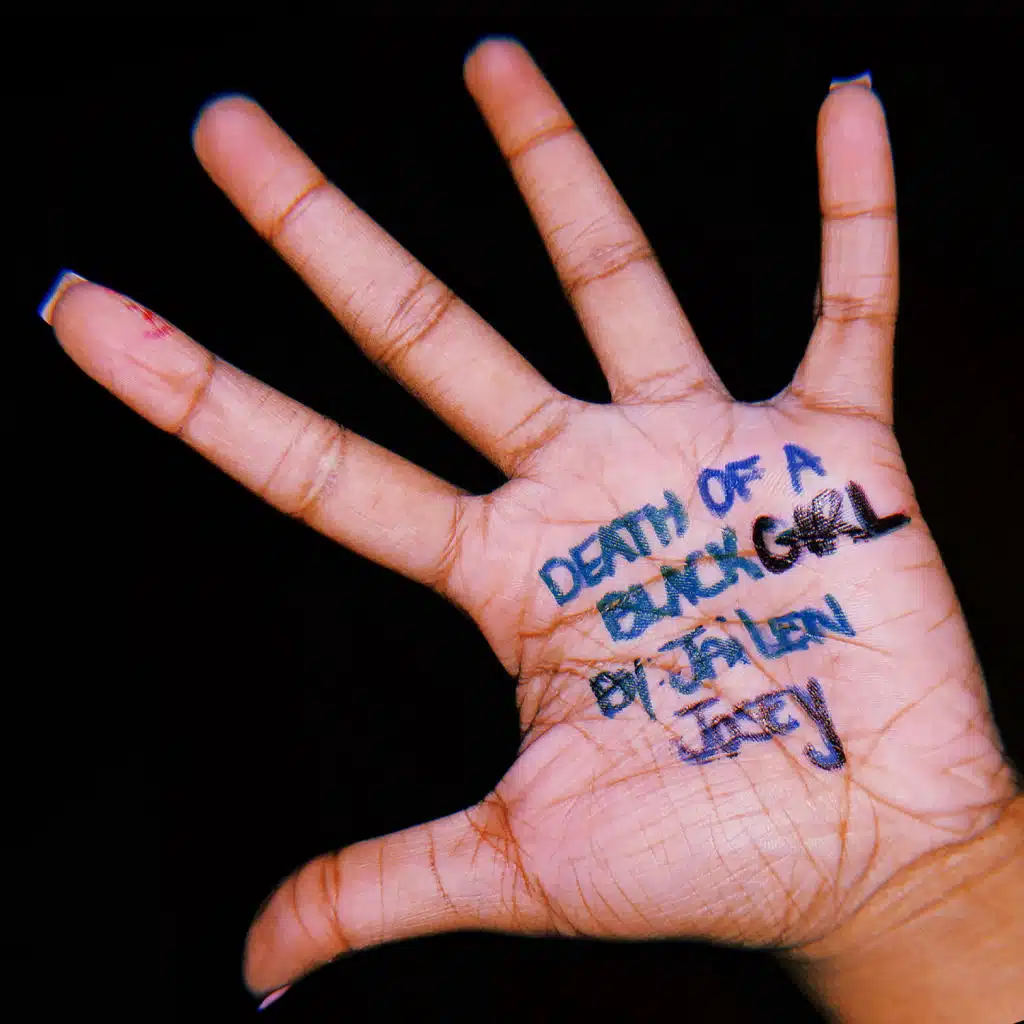 DEATH OF A
BLACK GIRL
BY: JAiLEN
JOSEY